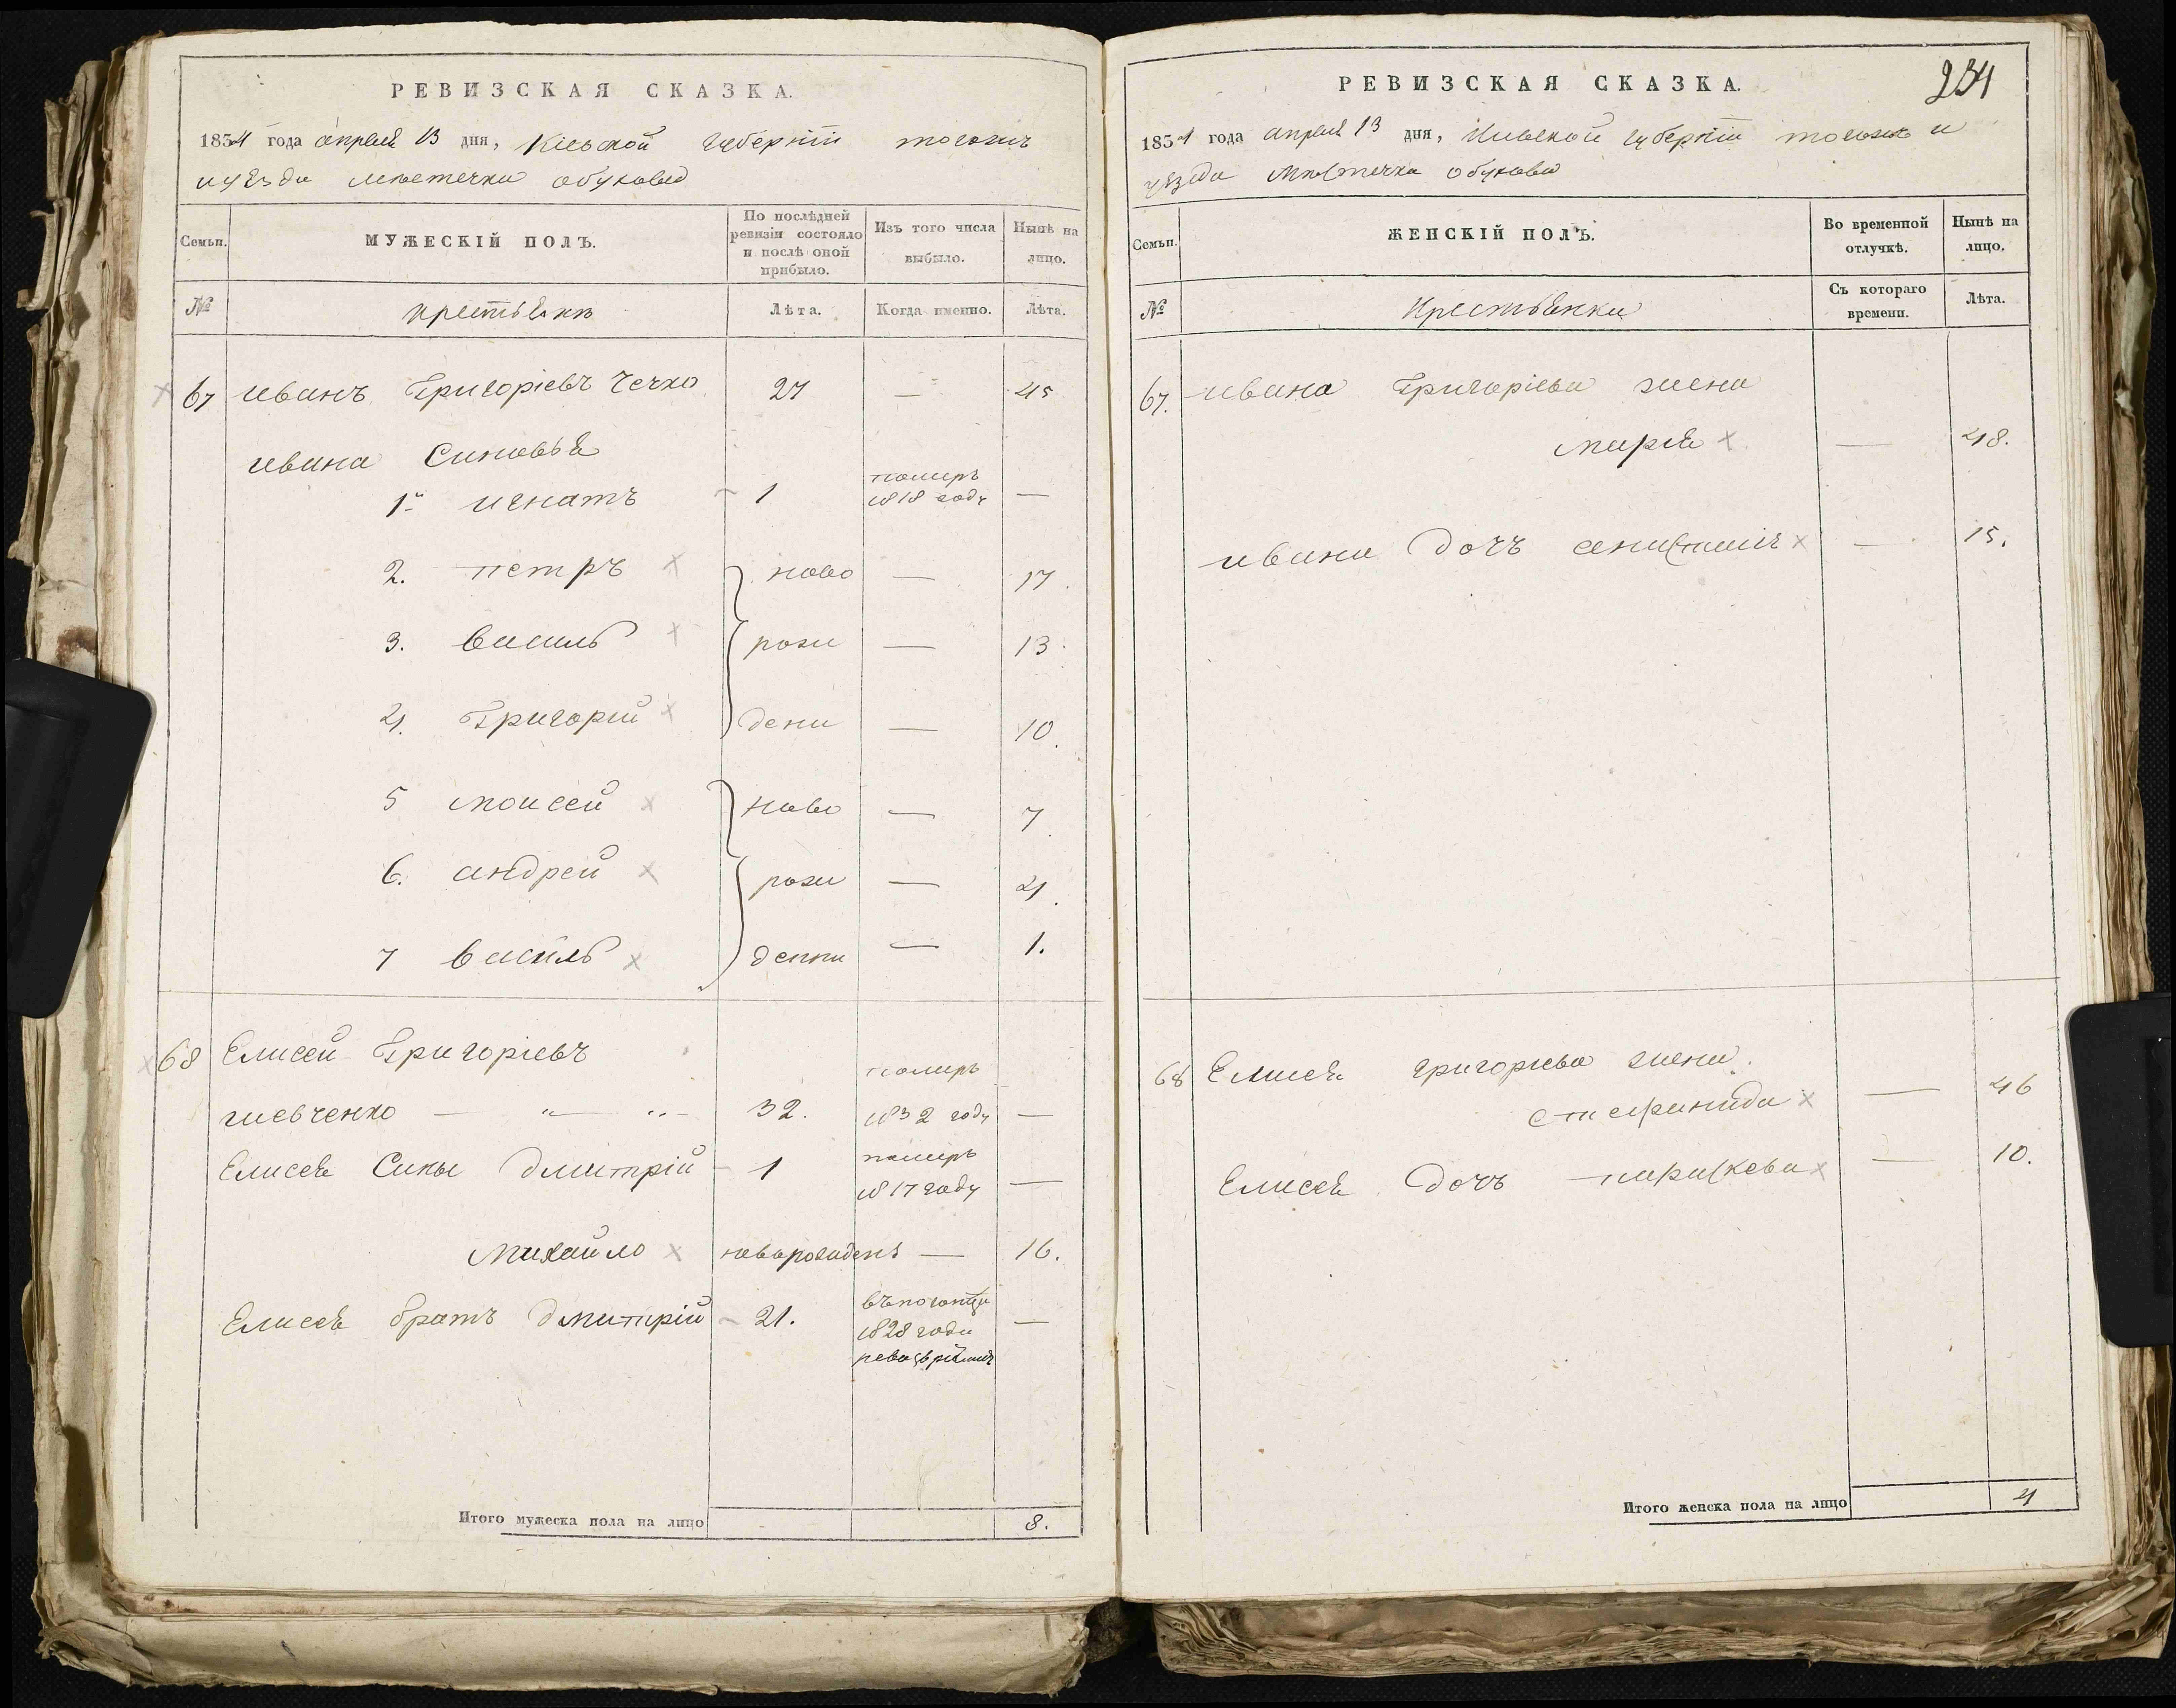 РЕВИЗСКАЯ СКАЗКА.
1834 года апреля 13 дня, Кіевской губерніи тогожъ
и уѣзда местечка обухова
Семьи. МУЖЕСКІЙ ПОЛЪ. По послѣдней ревизіи состояло и послѣ оной прибыло. Изъ того числа выбыло. Нынѣ на лицо.
№ крестьянъ Лѣта. Когда именно. Лѣта.
67 иванъ Григоріевъ Чечко 27 — 45
ивана Синовья
1й игнатъ 1 померъ 1818 году —
2. петръ ново — 17.
3. василь рож — 13.
4. Григорій дени — 10.
5 моисей ново — 7.
6. андрей рож — 4.
7 василь денни — 1.
68 Елисей Григоріевъ
шевченко — „ — „ — 32. померъ 1832 году —
Елисея Сины дмитрій 1 померъ 1817 году —
михайло новорожденъ — 16.
Елисея братъ дмитрій 21. 1828 года —
Итого мужеска пола на лицо 8.
РЕВИЗСКАЯ СКАЗКА. 234
1834 года апреля 13 дня, Кіевской губерніи тогожъ и
уѣзда местечка обухова
Семьи. ЖЕНСКІЙ ПОЛЪ. Во временной отлучкѣ. Нынѣ на лицо.
№ Крестьянки Съ котораго времени. Лѣта.
67. ивана Григоріева жена
марія — 48.
ивана дочъ — 15.
68 Елисея григоріева жена.
стефанида — 46
Елисея дочъ параскева — 10.
Итого женска пола на лицо 4